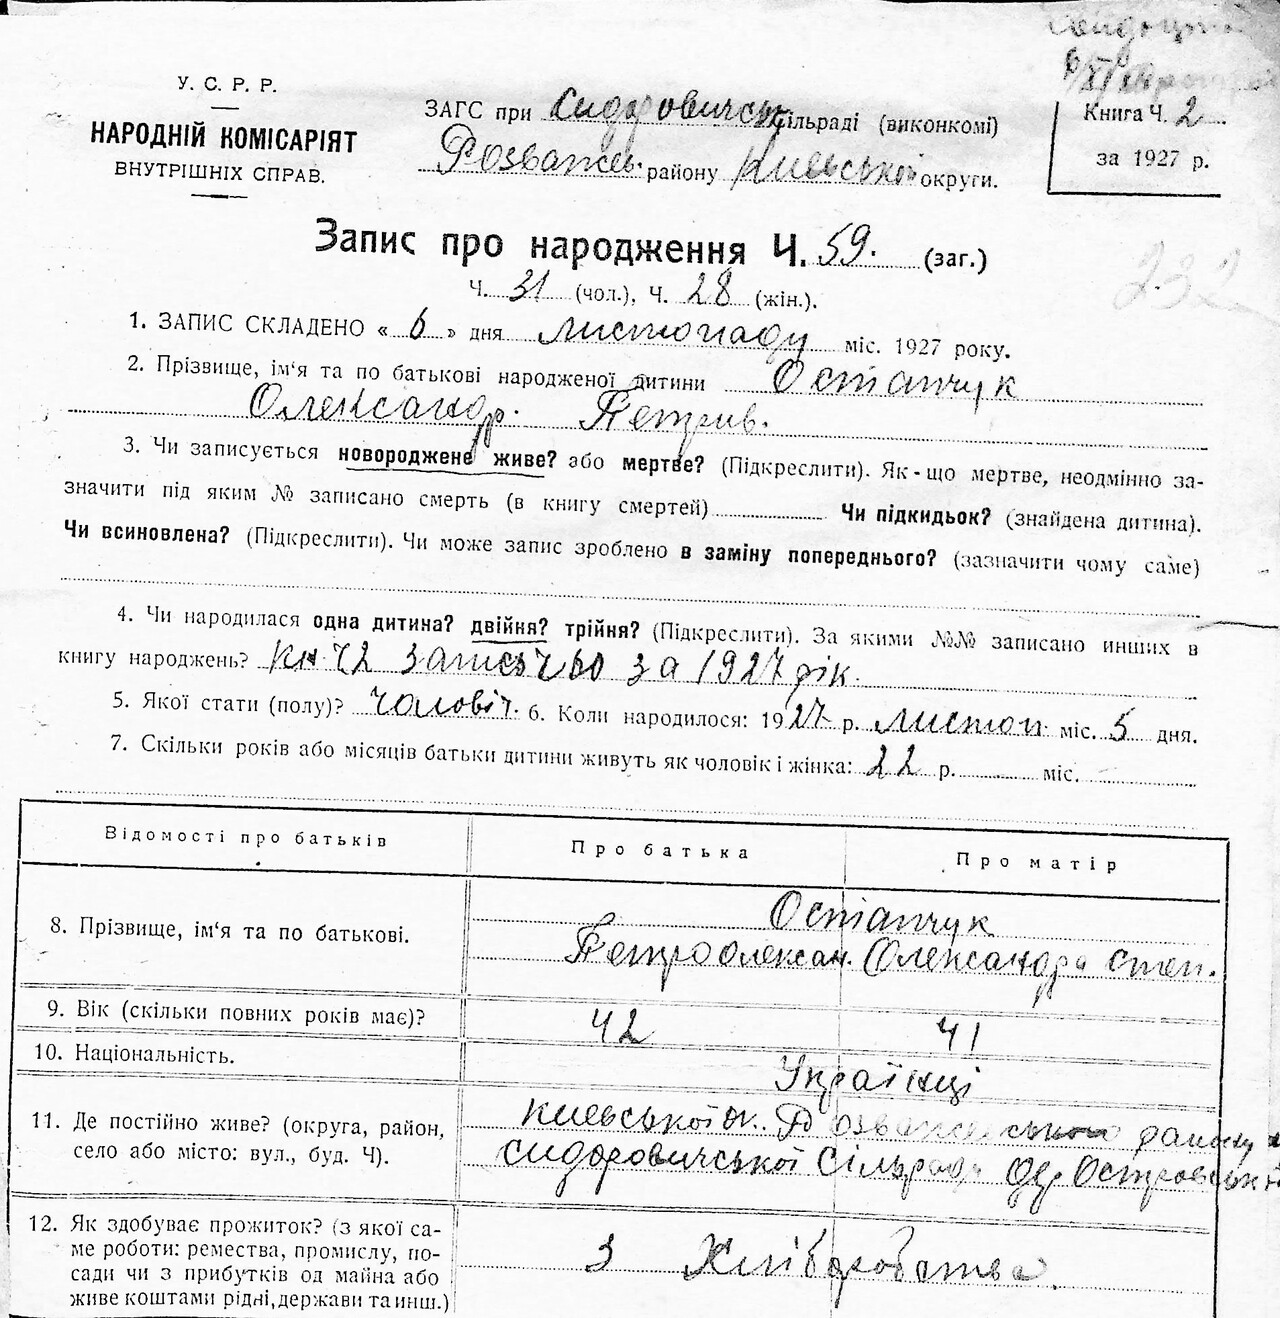 У. С. Р. Р.
НАРОДНІЙ КОМІСАРІЯТ
ВНУТРІШНІХ СПРАВ.
ЗАГС при Сидоровичськ. сільраді (виконкомі)
Розважев. району Київської округи.
Книга Ч. 2
за 1927 р.
232
Запис про народження Ч. 59. (заг.)
Ч. 31 (чол.), Ч. 28 (жін.).
1. ЗАПИС СКЛАДЕНО « 6 » дня листопаду міс. 1927 року.
2. Прізвище, ім‘я та по батькові народженої дитини Остапчук
Олександр. Петрив.
3. Чи записується новороджене живе? або мертве? (Підкреслити). Як-що мертве, неодмінно за-
значити під яким № записано смерть (в книгу смертей) Чи підкидьок? (знайдена дитина).
Чи всиновлена? (Підкреслити). Чи може запис зроблено в заміну попереднього? (зазначити чому саме)
4. Чи народилася одна дитина? двійня? трійня? (Підкреслити). За якими №№ записано инших в
книгу народжень? кн. Ч 2 запис Ч 60 за 1927 рік.
5. Якої стати (полу)? чоловіч. 6. Коли народилося: 1927 р. листоп. міс. 5 дня.
7. Скільки років або місяців батьки дитини живуть як чоловік і жінка: 22 р. міс.
Відомості про батьків Про батька Про матір
8. Прізвище, ім‘я та по батькові. Остапчук
Петро Олексан. Олександра Степ.
9. Вік (скільки повних років має)? 42 41
10. Національність. Українці
11. Де постійно живе? (округа, район, Киевської ок. Розважевського району
село або місто: вул., буд. Ч). Сидоровичської сільради
12. Як здобуває прожиток? (з якої са-
ме роботи: ремества, промислу, по-
сади чи з прибутків од майна або
живе коштами рідні, держави та инш.)
З Хліборобства.